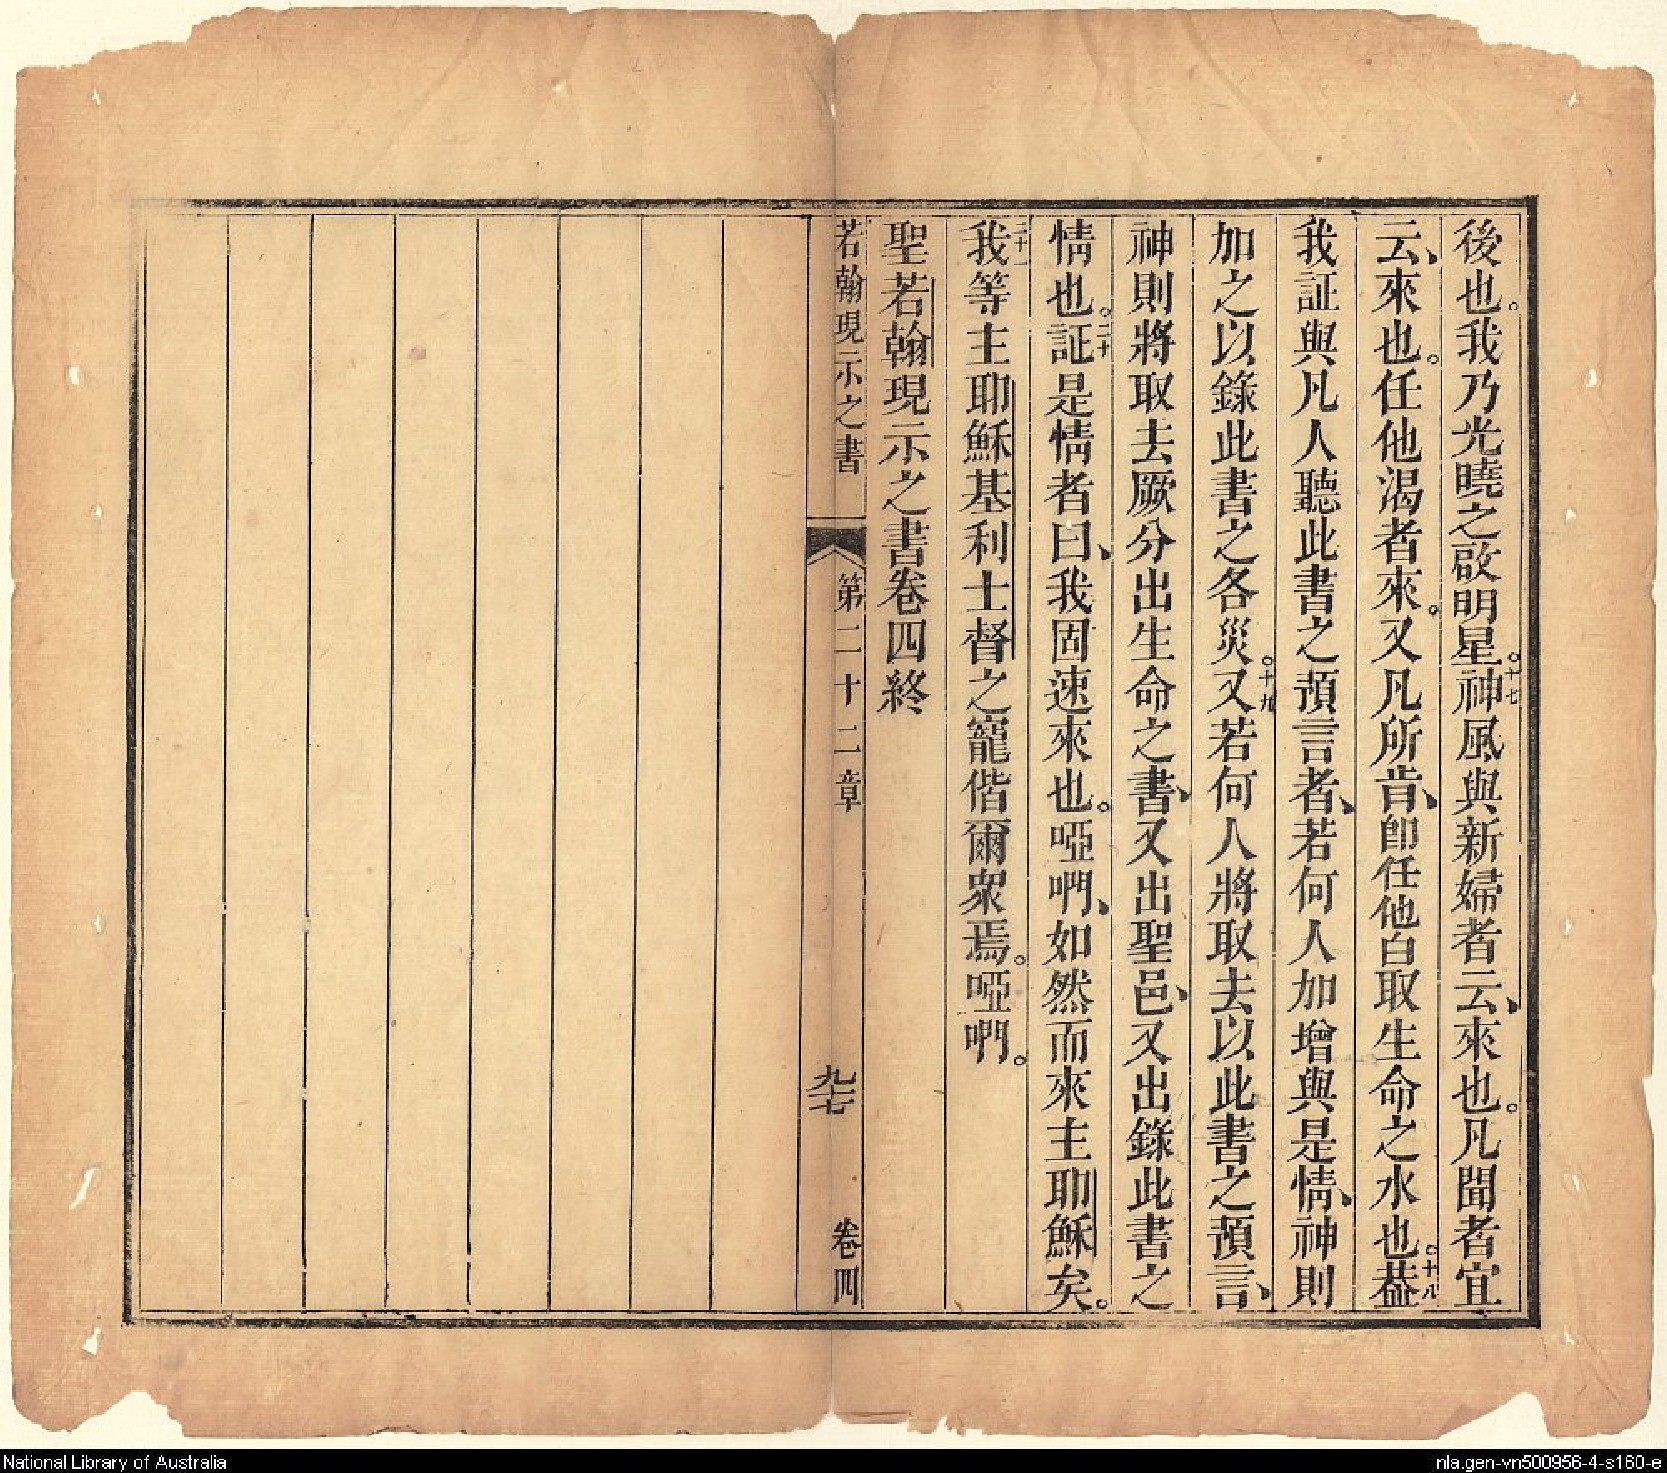 後也。我乃光曉之啟明星。十七神風與新婦者云、來也。凡聞者宜
云、來也。任他渴者來。又凡所肯、卽任他白取生命之水也。十八葢
我証與凡人聽此書之預言者、若何人加增與是情、神則
加之以錄此書之各災。十九又若何人將取去以此書之預言、
神則將取去厥分出生命之書、又出聖邑、又出錄此書之
情也。二十証是情者曰、我固速來也。啞呣、如然而來主耶穌矣。
二十一我等主耶穌基利士督之寵偕爾衆焉。啞呣。
聖若翰現示之書卷四終
若翰現示之書
第二十二章
九十七
卷四
National Library of Australia
nla.gen-vn500956-4-s160-e